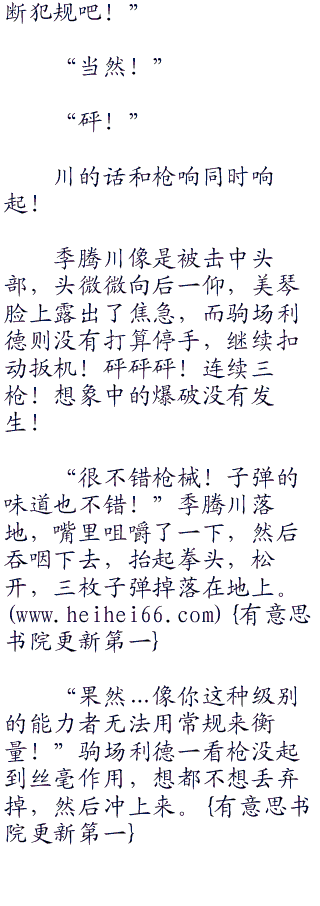 断犯规吧！”
“当然！”
“砰！”
川的话和枪响同时响
起！
季腾川像是被击中头
部，头微微向后一仰，美琴
脸上露出了焦急，而驹场利
德则没有打算停手，继续扣
动扳机！砰砰砰！连续三
枪！想象中的爆破没有发
生！
“很不错枪械！子弹的
味道也不错！”季腾川落
地，嘴里咀嚼了一下，然后
吞咽下去，抬起拳头，松
开，三枚子弹掉落在地上。
(www.heihei66.com) {有意思
书院更新第一}
“果然…像你这种级别
的能力者无法用常规来衡
量！”驹场利德一看枪没起
到丝毫作用，想都不想丢弃
掉，然后冲上来。{有意思书
院更新第一}